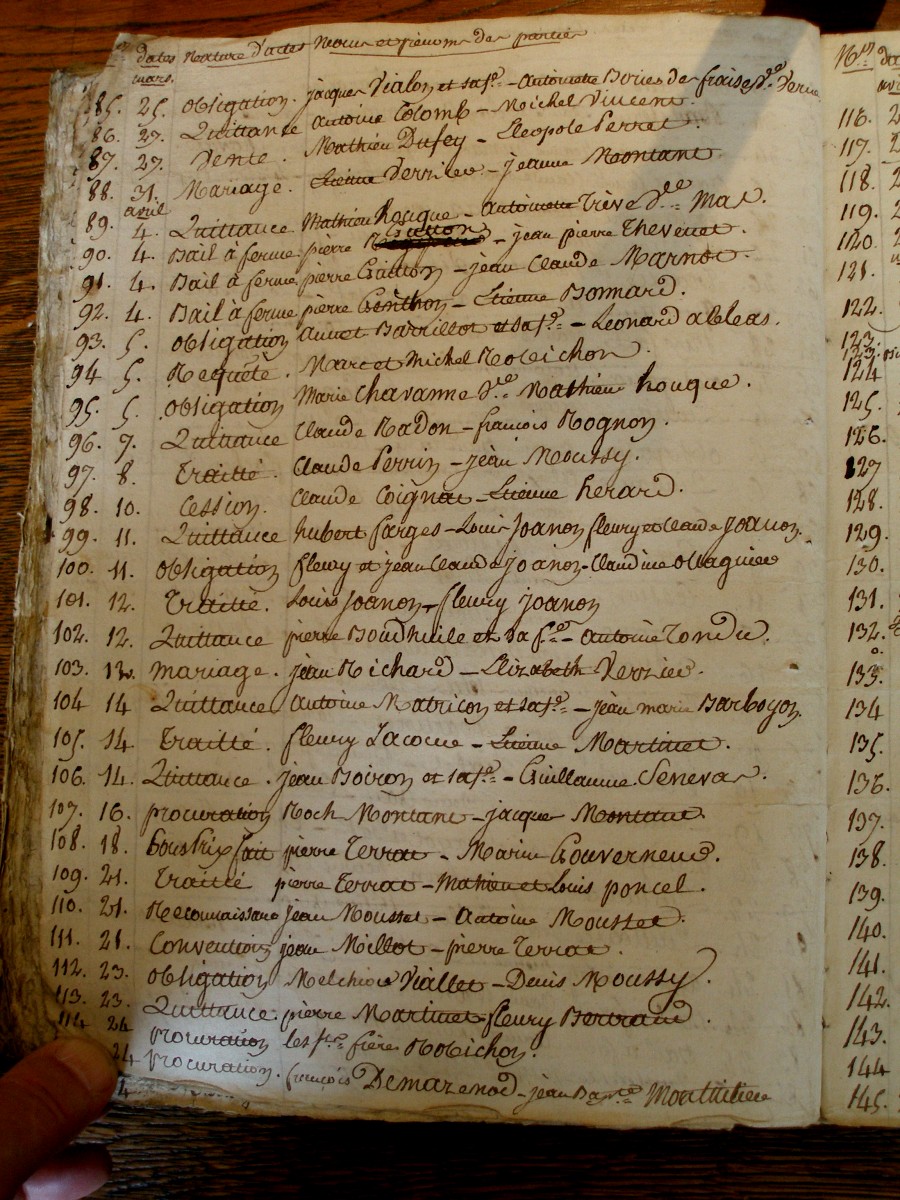 dates Nature d'actes Noms et prénoms des parties
mars.
85. 25. obligation. jacques Vialon et sa fe. - Antoinette Bories des fraises Ve.
86. 27. Quittance Antoine Colomb - Michel Vincent.
87. 27. Vente. Mathieu Dufey - Cleopole Perret.
88. 31. Mariage. Etienne Verrier - jeanne Montant
avril
89. 4. Quittance Mathieu houque - Antoinette Trève Ve. Mas.
90. 4. Bail à ferme pierre Guitton - jean pierre Thevenet.
91. 4. Bail à ferme pierre Guitton - jean Claude Marnat
92. 4. Bail à ferme pierre - Etienne Bonnard.
93. 5. obligation annet Barrillot et sa fe. - Leonard
94 5. Requête. Marc et Michel Robichon.
95. 5. obligation Marie Chavanne Ve. Mathieu houque.
96. 7. Quittance Claude Radon - françois Rognon.
97. 8. Traitté. Claude Perrin - jean Moussy.
98. 10. Cession. Claude Coignat - Etienne herard.
99. 11. Quittance hubert farges - Louis Joanon fleury et Claude Joanon.
100. 11. obligation fleury et jean Claude joanon - Claudine
101. 12. Traitté. Louis Joanon - fleury joanon
102. 12. Quittance pierre et sa fe. - Antoine Tondu.
103. 12. mariage. jean Richard - Elizabeth Verrier.
104 14 Quittance Antoine Matricon et sa fe. - jean marie Barboyon.
105. 14 Traitté. fleury Lacour - Etienne Martinet.
106. 14. Quittance. jean Boiron et sa fe. - Guillaume Senevas.
107. 16. procuration Roch Montant - jacques Montant
108. 18. fait pierre Terrat - Marin Gouverneur.
109. 21. Traitté pierre Terrat - Mathieu et Louis poncel.
110. 21. Reconnaissance jean Mousset - Antoine Mousset.
111. 21. Convention jean Millot - pierre Terrat.
112. 23. obligation Melchior Viallet - Denis Moussy
113. 23. Quittance. pierre Martinet fleury Bertrand.
114 24 procuration les frère Robichon.
24 procuration. françois Demazenod - jean Bapte.
4
Nos.
116.
117.
118.
119.
120.
121.
122.
123.
124
125.
126.
127
128.
129.
130.
131.
132.
133.
134
135.
136.
137.
138.
139.
140.
141.
142.
143.
144
145.